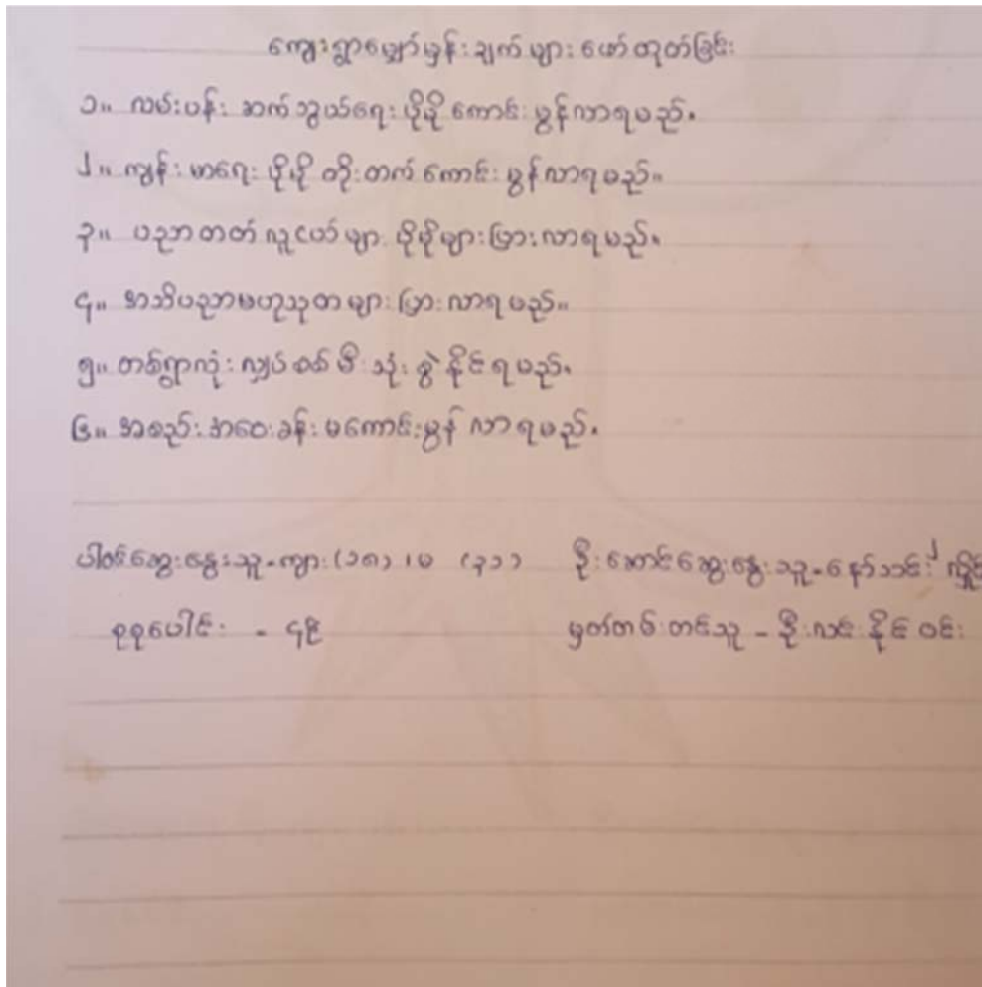 ကျေးရွာမျှော်မှန်းချက်များဖော်ထုတ်ခြင်း
၁။ လမ်းပန်းဆက်သွယ်ရေးပိုမိုကောင်းမွန်လာရမည်။
၂။ ကျန်းမာရေးပိုမိုတိုးတက်ကောင်းမွန်လာရမည်။
၃။ ပညာတတ်လူငယ်များ ပိုမိုများပြားလာရမည်။
၄။ အသိပညာဗဟုသုတများပြားလာရမည်။
၅။ တစ်ရွာလုံးလျှပ်စစ်မီးသုံးစွဲနိုင်ရမည်။
၆။ အစည်းအဝေးခန်းမကောင်းမွန်လာရမည်။
ပါဝင်ဆွေးနွေးသူ-ကျား (၁၈) ၊ မ (၃၁) ဦးဆောင်ဆွေးနွေးသူ-နော်သင်း
စုစုပေါင်း - ၄၉ မှတ်တမ်းတင်သူ - ဦးလင်းနိုင်ဝင်း